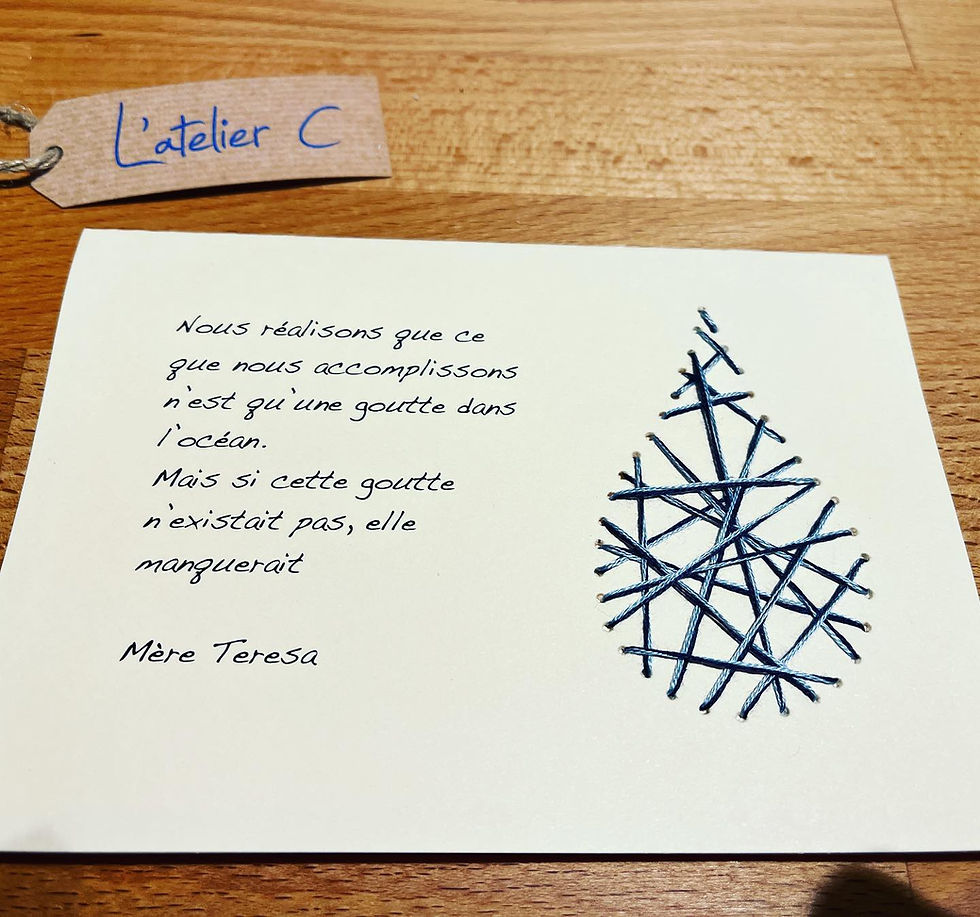 L'atelier C
Nous réalisons que ce
que nous accomplissons
n'est qu'une goutte dans
l'océan.
Mais si cette goutte
n'existait pas, elle
manquerait
Mère Teresa